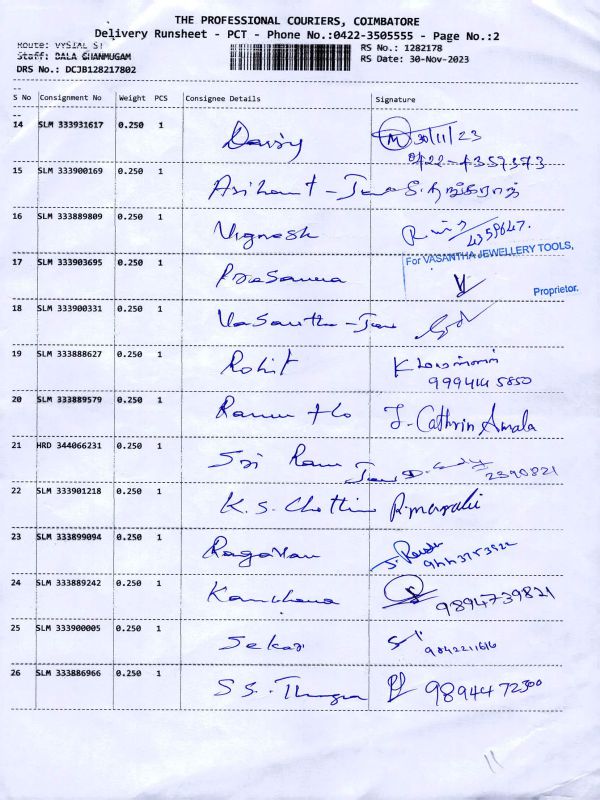 THE PROFESSIONAL COURIERS, COIMBATORE
Delivery Runsheet - PCT - Phone No.:0422-3505555 - Page No.:2
Route: VYSIAL ST
RS No.: 1282178
Staff: BALA SHANMUGAM
RS Date: 30-Nov-2023
DRS No.: DCJB128217802
S No Consignment No Weight PCS Consignee Details Signature
14 SLM 333931617 0.250 1 Daisy M 30/11/23
0422-4357373
15 SLM 333900169 0.250 1 Arihant -
16 SLM 333889809 0.250 1 Vignesh 4359647.
For VASANTHA JEWELLERY TOOLS,
17 SLM 333903695 0.250 1 Prasanna
Proprietor.
18 SLM 333900331 0.250 1 Vasantha -
19 SLM 333888627 0.250 1 Rohit K
999414 5850
20 SLM 333889579 0.250 1 J. Cathrin Amala
21 HRD 344066231 0.250 1 Sri Ram 2390821
22 SLM 333901218 0.250 1 K.S.
23 SLM 333899094 0.250 1 Ragavan
24 SLM 333889242 0.250 1 Kanchana 9894739821
25 SLM 333900005 0.250 1 Sekar 9842211616
26 SLM 333886966 0.250 1 S.S. 9894472300
11